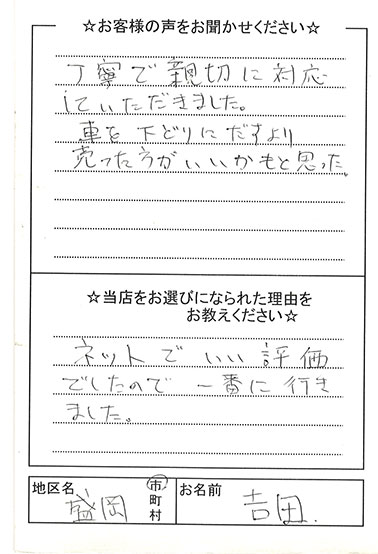 ☆お客様の声をお聞かせください☆
丁寧で親切に対応
していただきました。
車を下どりにだすより
売った方がいいかもと思った。
☆当店をお選びになられた理由を
お教えください☆
ネットでいい評価
でしたので一番に行き
ました。
地区名 盛岡 市 町 村
お名前 吉田